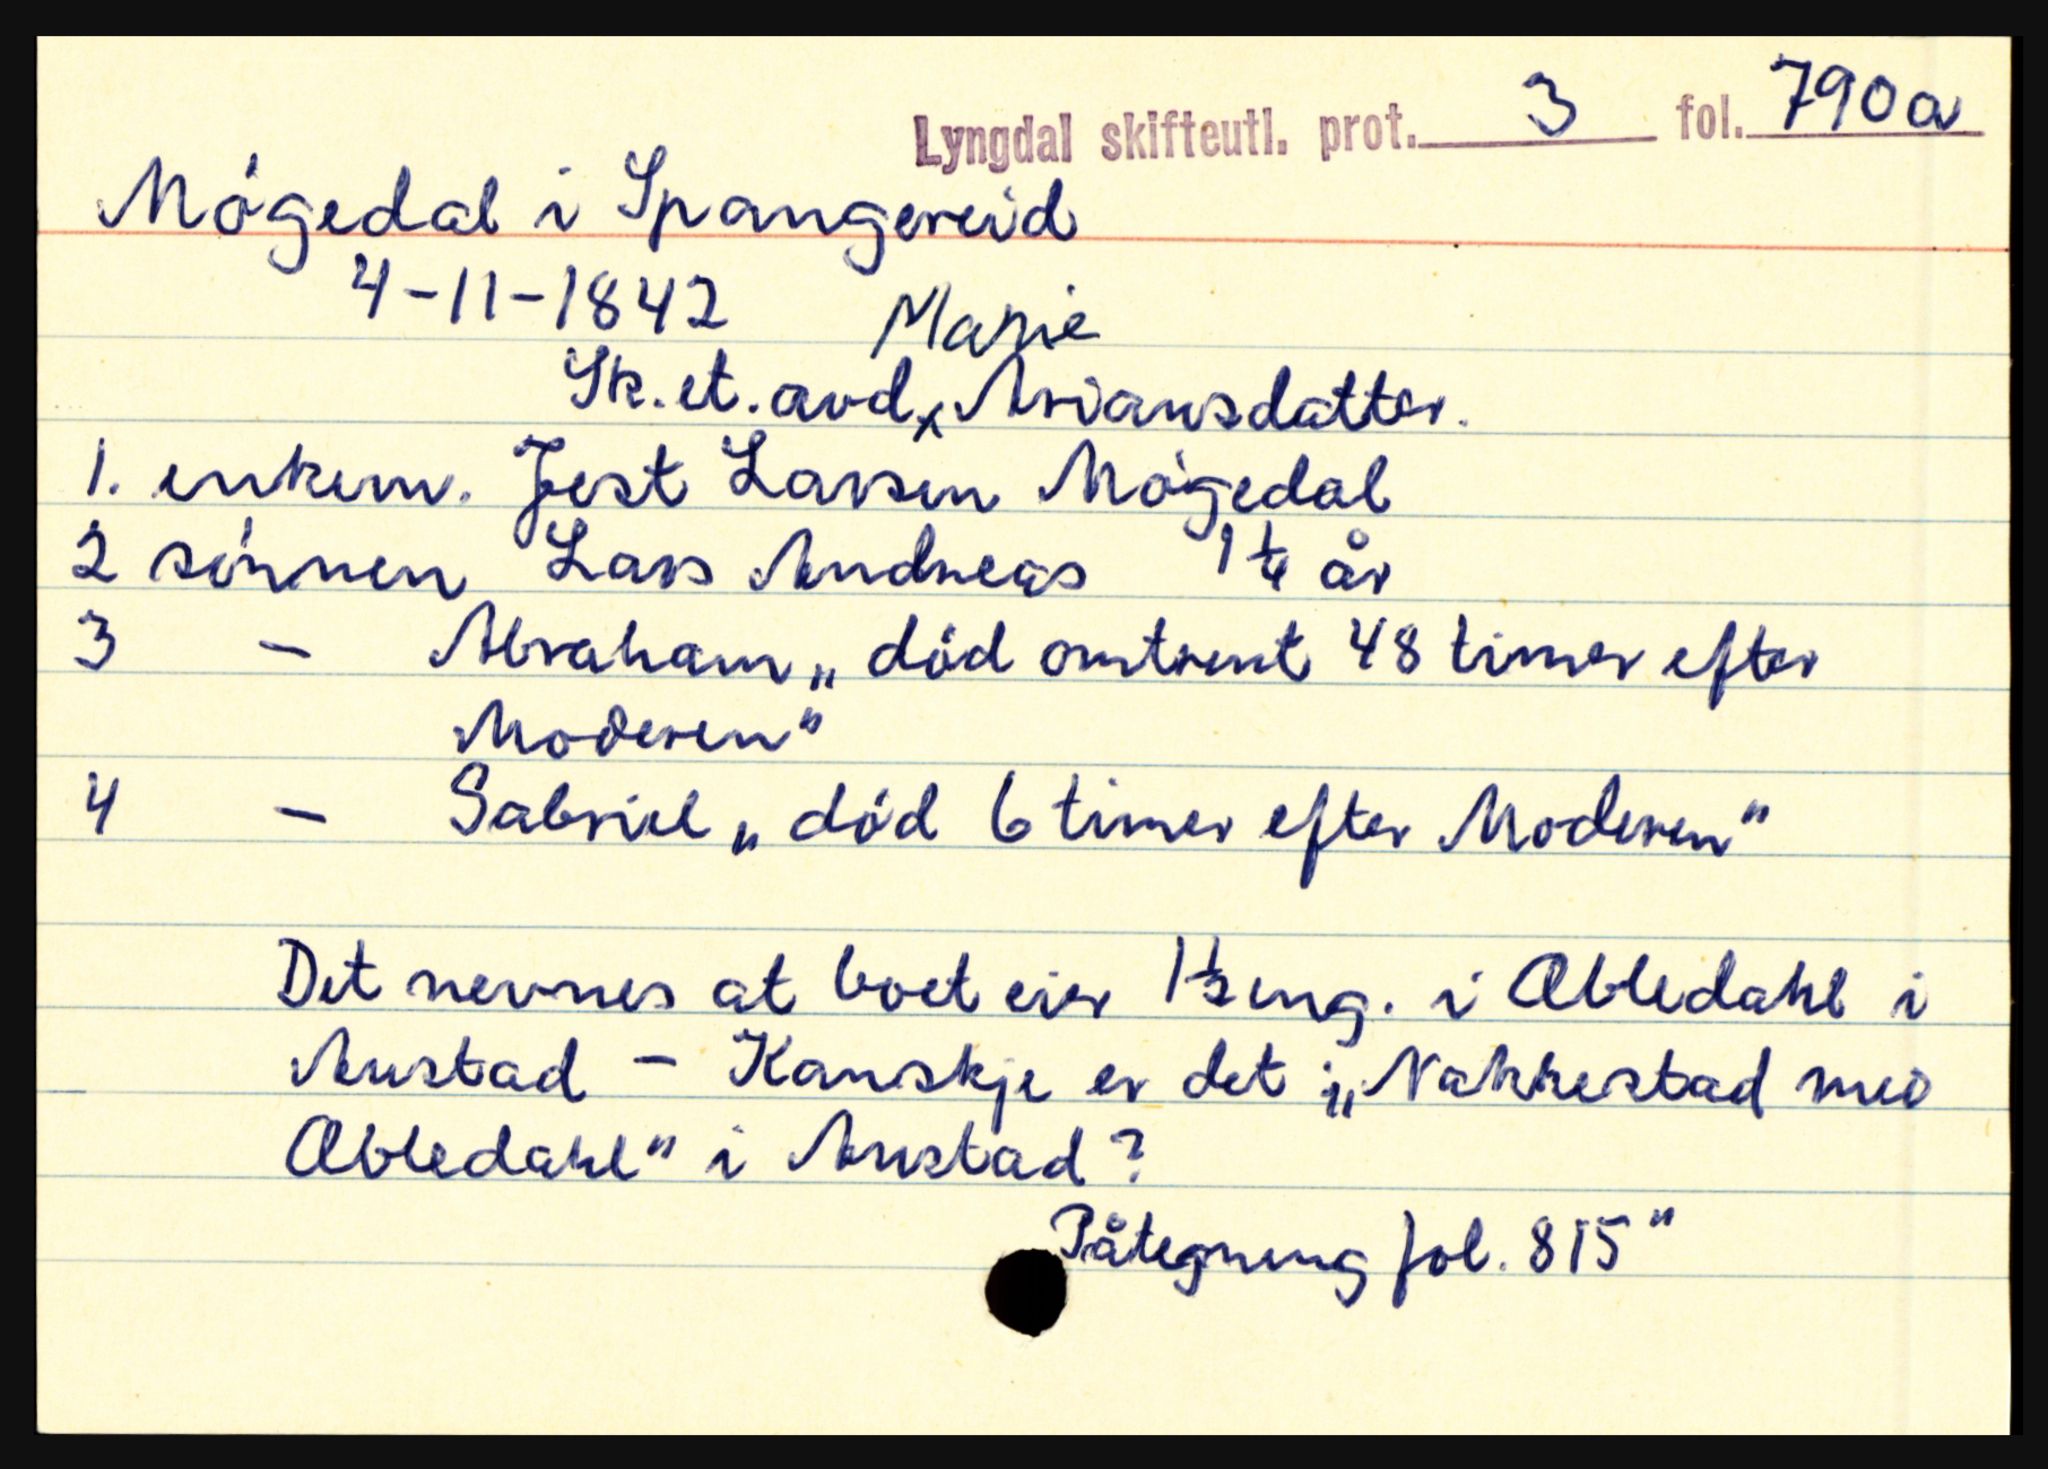 Lyngdal skifteutl. prot. 3 fol. 790a
Møgedal i Spangereid
4-11-1842 Marie
Sk. et. avd, x Ariansdatter.
1. enkem. Jest Larsen Møgedal
2 sønnen Lars Andreas 1 1/4 år
3 – Abraham „ død omtrent 48 timer efter
Moderen"
4 – Gabriel „ død 6 timer efter Moderen"
Det nevnes at boet eier 1 1/2 eng. i Æbledahl i
Austad – Kanskje er det i „Nakkestad med
Æbledahl" i Austad?
Påtegning fol. 815"